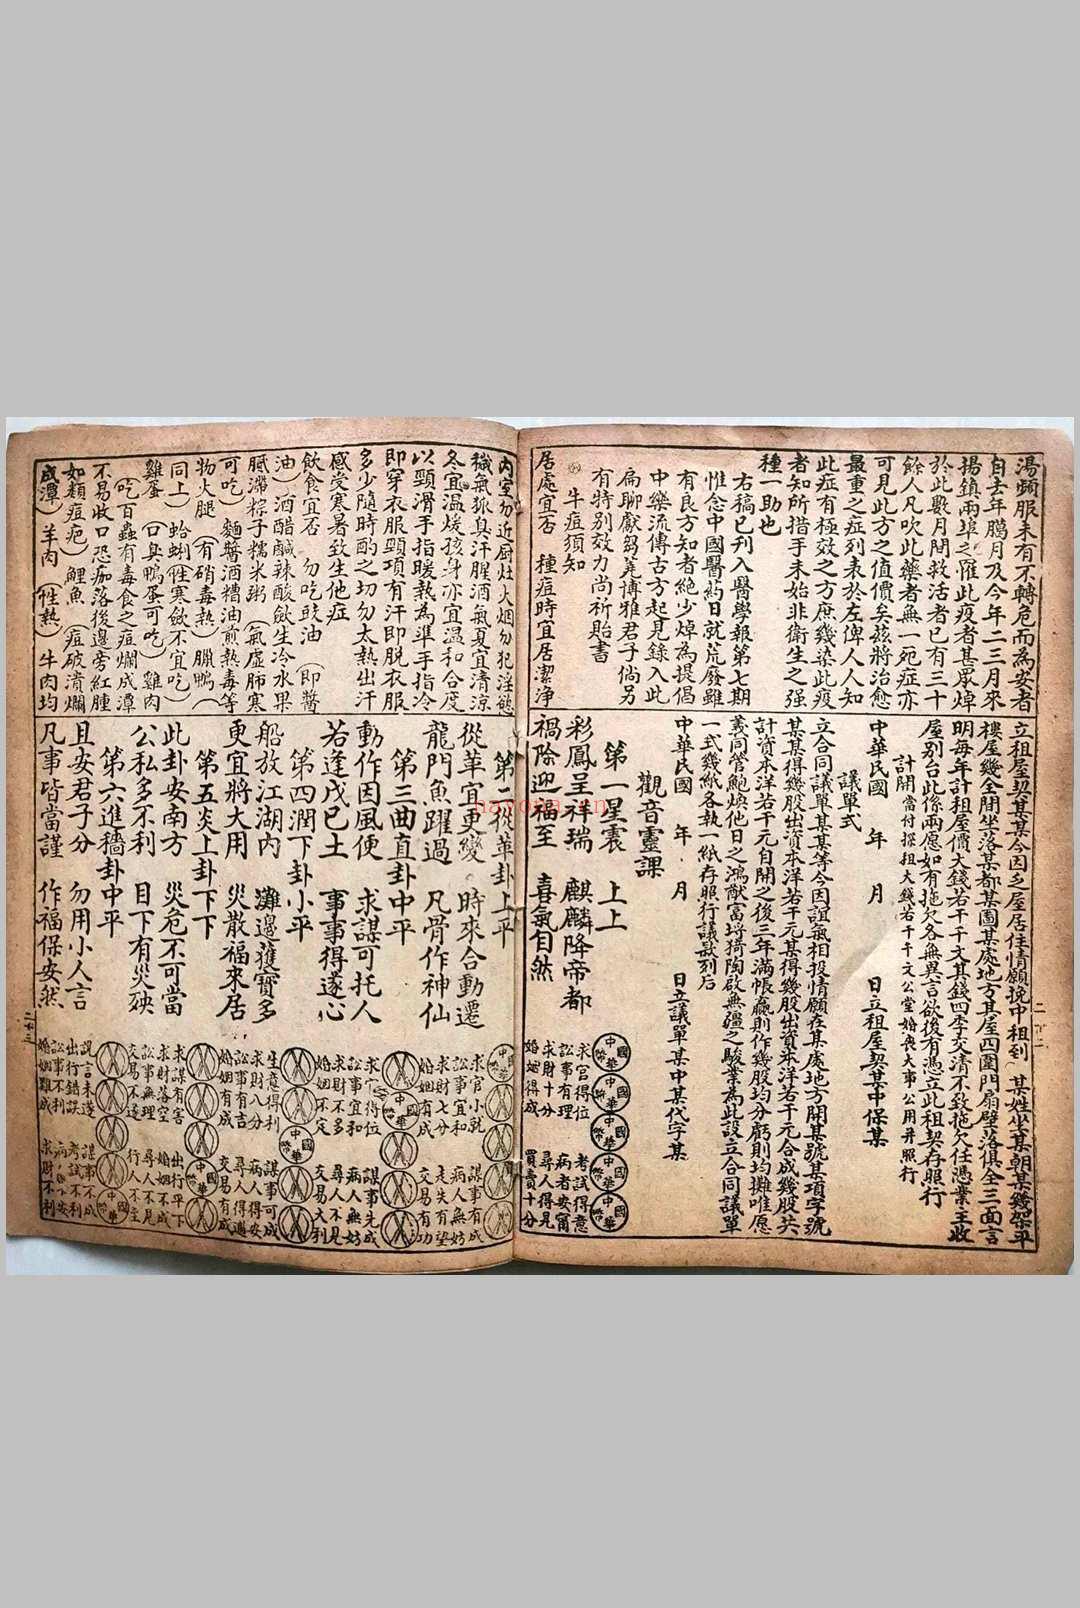 湯頻服未有不轉危而為安者
自去年臈月及今年二三月來
揚鎮兩埠之罹此疫者甚眾焯
於此數月間救活者已有三十
餘人凡吹此藥者無一死症亦
可見此方之值價矣茲將治愈
最重之症列表於左俾人人知
此症有極效之方庶幾染此疫
者知所措手未始非衛生之强
種一助也
右稿已刊入醫學報第七期
惟念中國醫葯日就荒廢雖
有良方知者絶少焯為提倡
中樂流傳古方起見錄入此
扁聊獻芻蕘博雅君子倘另
有特别效力尚祈貽書
牛痘須知
居處宜否 種痘時宜居潔淨
立租屋契某某今因乏屋居住情願挽中租到 某姓坐某朝某幾架平
樓屋幾全間坐落某都某圖某處地方其屋四圍門扇壁落俱全三面言
明每年計租屋價大錢若干千文其錢四季交清不致拖欠任憑業主收
屋别召此係兩愿如有拖欠各無異言欲後有憑立此租契存照行
計開 當付探租大錢若千千文公堂婚喪大事公用并照行
中華民國 年 月 日立租屋契某中保某
議單式
立合同議單某某等今因誼氣相投情願在某處地方開某號某項字號
某某得幾股出資本洋若干元某得幾股出資本洋若干元合成幾股共
計資本洋若干元自開之後三年滿帳贏則作幾股均分虧則均攤唯愿
義同管鮑煥他日之鴻猷富埓猗陶啟無疆之駿業為此設立合同議單
一式幾紙各執一紙存照行議獃刻后
中華民國 年 月 日立議單某中某代字某
觀音靈課
第一星震 上上
彩鳳呈祥瑞 麒麟降帝都
禍除迎福至 喜氣自然
中華國幣
求官得位 考試得意
訟事有理 病者安甯
求財十分 尋人得見
婚姻得成 買賣十分
內室勿近厨灶火烟勿犯淫慾
穢氣狐臭汗腥酒氣夏宜清凉
冬宜温煖孩身亦宜温和合度
以頸滑手指暖熱為準手指冷
即穿衣服頸項有汗即脱衣服
多少隨時酌之切勿太熱出汗
感受寒暑致生他症
飲食宜否 勿吃豉油(即醬
油)酒醋鹹辣酸歛生冷水果
膩滯粽子糯米粥(氣虛肺寒
可吃)麵醬酒糟油煎熱毒等
物火腿(有硝毒熱)臘鴨(
同上)蛤蜊(性寒歛不宜吃)
雞蛋(口臭鴨蛋可吃)雞肉
(吃百蟲有毒食之痘爛成潭
不易收口恐痂落後邊旁紅腫
如類痘疤)鯉魚(痘破潰爛
成潭)羊肉(性熱)牛肉均
第二從革卦上平
從革宜更變 時來合動遷
龍門魚躍過 凡骨作神仙
第三曲直卦中平
動作因風便 求謀可托人
若逢戊已土 事事得遂心
第四潤下卦小平
船放江湖內 灘邊獲寶多
更宜將大用 災散福來居
第五炎上卦下下
此卦安南方 災危不可當
公私多不利 目下有災殃
第六進穡卦中平
且安君子分 勿用小人言
凡事皆當謹 作福保安然
中華國幣
求官小就 謀事有成
訟事宜和 病人無妨
求財七分 走失有望
婚姻有成 交易有功
中華國幣
求官得位 謀事先成
訟事宜和 病人無妨
求財不多 尋人不見
婚姻不定 交易大利
中華國幣
生意得利 謀事可成
求財八分 病人得安
訟事有吉 尋人得遇
婚姻有成 交易有成
中華國幣
求謀有害 出行平下
求財落空 婚姻不成
訟事無理 尋人不見
交易不遂 行人不至
中華國幣
説言未遂 謀事不成
出行錯誤 考試不利
訟事不利
婚姻難成 求財不利